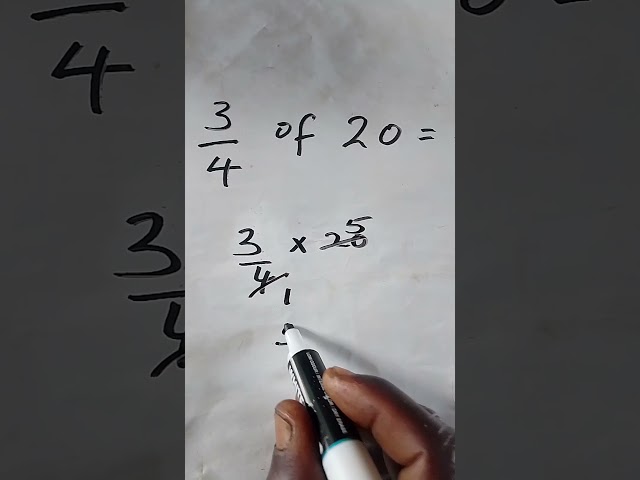 3/4 of 20 =
3/4 × 20 5
1